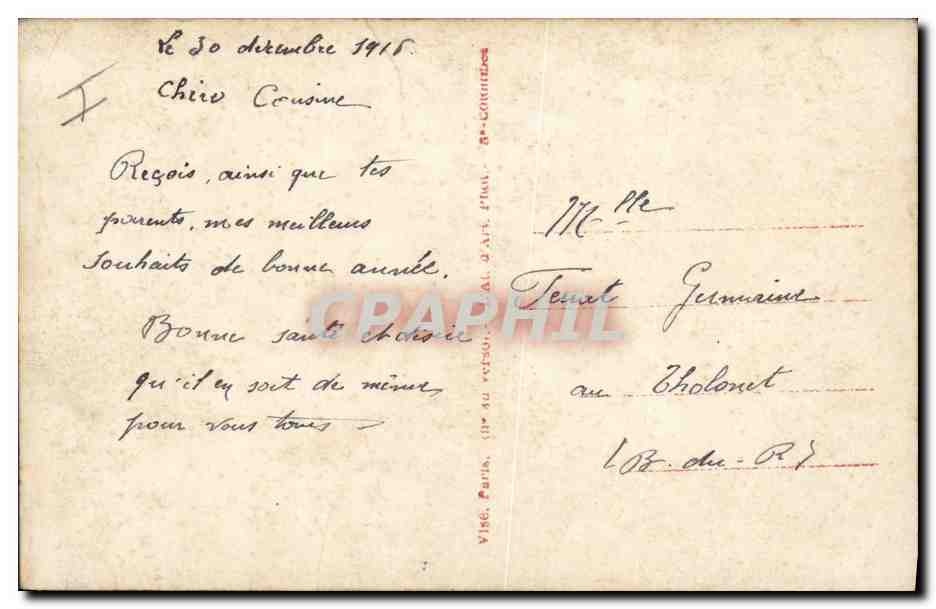 Le 30 décembre 1915.
Chère Cousine
Reçois, ainsi que tes
parents, mes meilleurs
souhaits de bonne année.
Bonne santé et désire
qu'il en soit de même
pour vous tous
Visé, Paris. (N° au verso). At. d'Art. Phot. -
CPARAMA
Mlle
Germaine
au Tholonet
(B. du. R)